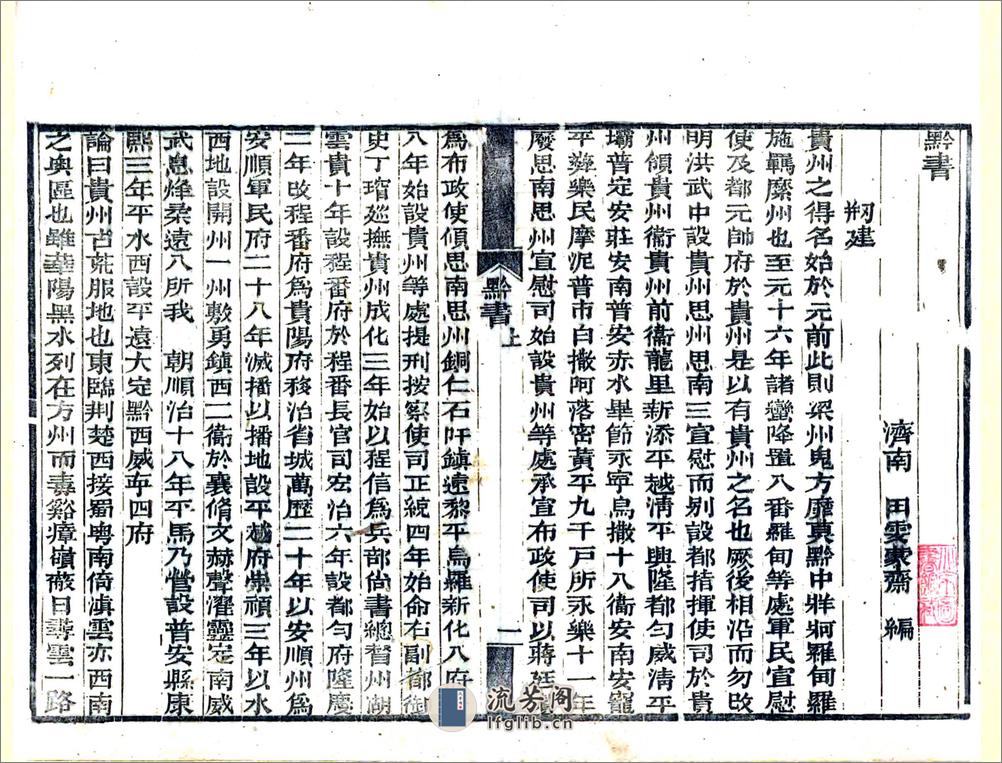 黔書
濟南 田雯蒙齋 編
剏建
貴州之得名始於元前此則梁州鬼方靡莫黔中牂牁羅甸羅
施羈縻州也至元十六年諸蠻降置八番羅甸等處軍民宣慰
使及都元帥府於貴州是以有貴州之名也厥後相沿而勿改
明洪武中設貴州思州思南三宣慰而别設都指揮使司於貴
州領貴州衞貴州前衞龍里新添平越淸平興隆都勻威淸平
壩普定安莊安南普安赤水畢節永寧烏撒十八衞安南安龍
平彝樂民摩泥普市白撒阿落密黃平九千戸所永樂十一年
廢思南思州宣慰司始設貴州等處承宣布政使司以蔣廷瓚
黔書 上 一
爲布政使領思南思州銅仁石阡鎭遠黎平烏羅新化八府
八年始設貴州等處提刑按察使司正統四年始命右副都御
史丁璿廵撫貴州成化三年始以程信爲兵部尚書總督川湖
雲貴十年設程番府於程番長官司宏治六年設都勻府隆慶
二年改程番府爲貴陽府移治省城萬歷二十年以安順州爲
安順軍民府二十八年滅播以播地設平越府崇禎三年以水
西地設開州一州敷勇鎭西二衞於襄脩文赫聲濯靈定南威
武息烽柔遠八所我 朝順治十八年平馬乃營設普安縣康
熙三年平水西設平遠大定黔西威寧四府
論曰貴州古荒服地也東臨荆楚西接蜀粤南倚滇雲亦西南
之奥區也雖華陽黑水列在方州而毒谿瘴嶺蔽日尋雲一路
流芳阁
lfglib.cn